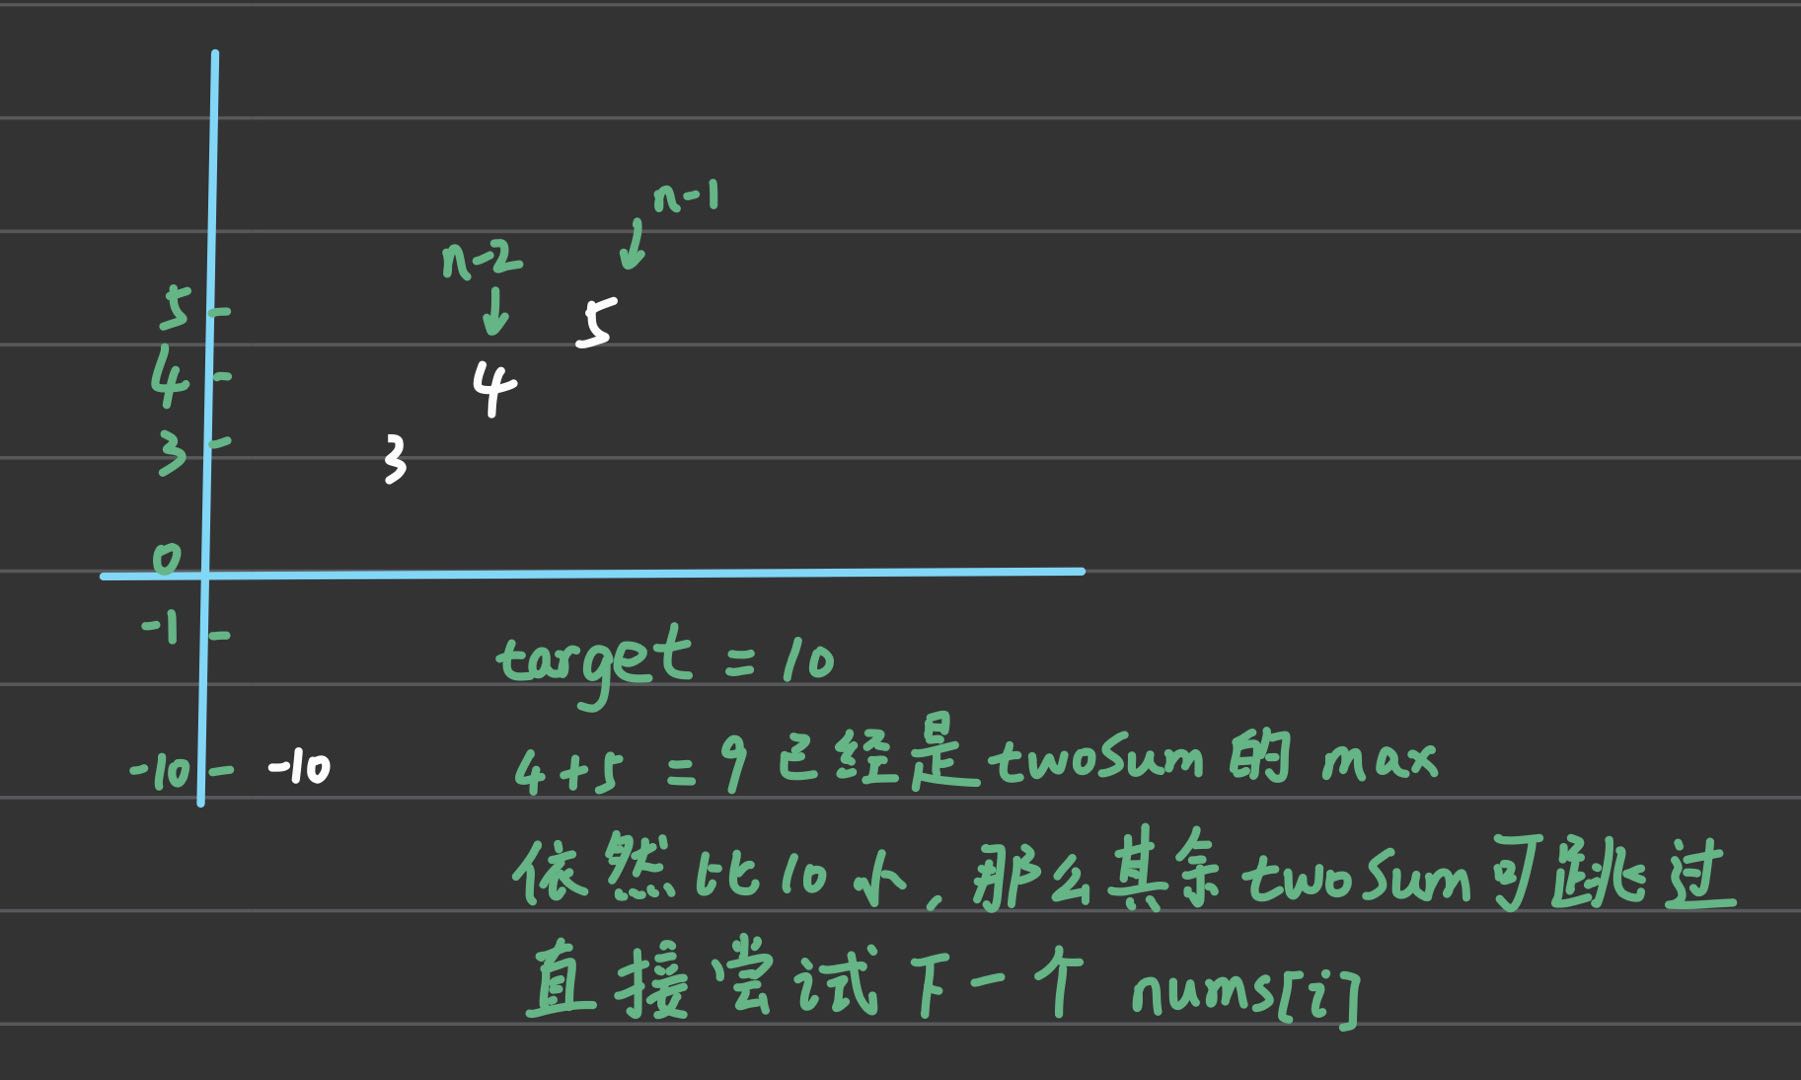 n-1
n-2
5
5
4
4
3
3
0
-1
target = 10
-10
-10
4+5 = 9 已经是 twoSum 的 max
依然比10小, 那么其余 twoSum 可跳过
直接尝试下一个 nums[i]